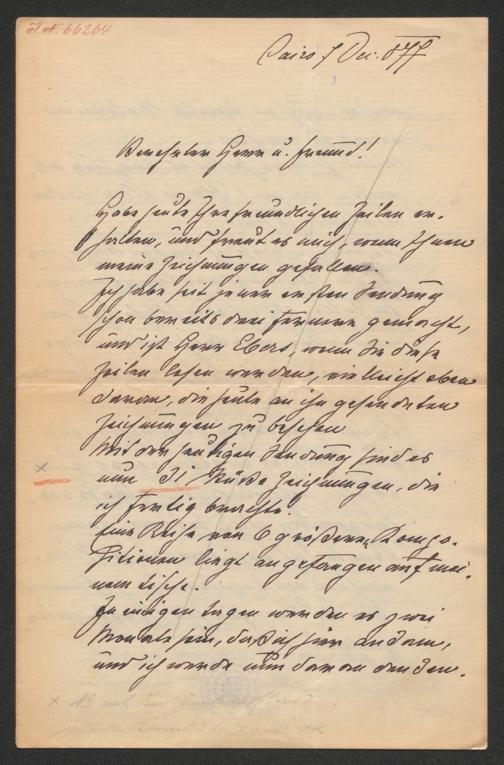 I.N. 66264
Cairo 7 Dec. 877
Verehrter Herr u. Freund!
Habe heute Ihre freundlichen Zeilen er-
halten, und freut es mich, wenn Ihnen
meine Zeichnungen gefallen.
Ich habe seit jener ersten Sendung
schon bereits drei fernere gemacht,
und ist Herr Ebers, wenn Sie diese
Zeilen lesen werden, vielleicht eben
daran, die heute an ihn gesendeten
Zeichnungen zu besehen
Mit der heutigen Sendung sind es
nun 31 Stücke Zeichnungen, die
ich fertig brachte.
Eine Reihe von 6 größeren Kompo-
sitionen liegt angefangen auf mei-
nem Tische.
In einigen Tagen werden es zwei
Monate sein, daß ich hier ankam,
und ich werde nun daran denken,
x NB mit dem